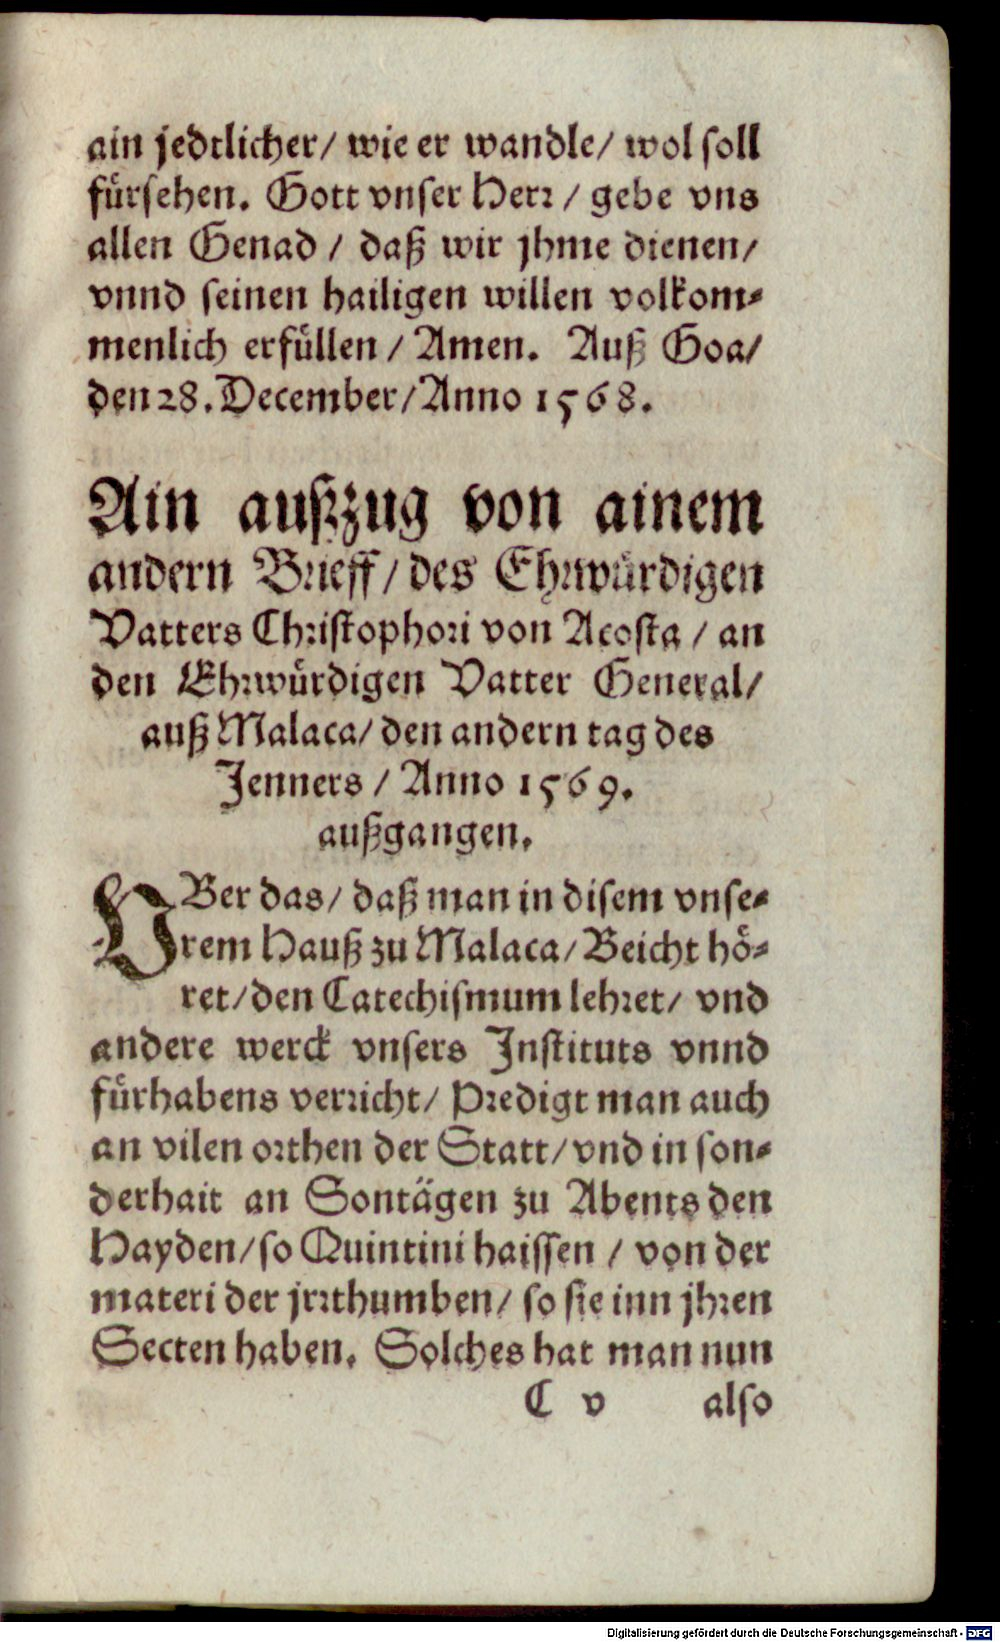 ain jedtlicher/ wie er wandle/ wol soll
fürsehen. Gott vnser Herr / gebe vns
allen Genad / daß wir jhme dienen/
vnnd seinen hailigen willen volkom-
menlich erfüllen / Amen. Auß Goa/
den 28. December/ Anno 1568.
Ain außzug von ainem
andern Brieff/ des Ehrwürdigen
Vatters Christophori von Acosta / an
den Ehrwürdigen Vatter General/
auß Malaca/ den andern tag des
Jenners / Anno 1569.
außgangen.
VBer das/ daß man in disem vnse-
rem Hauß zu Malaca/ Beicht hö-
ret/ den Catechismum lehret/ vnd
andere werck vnsers Instituts vnnd
fürhabens verricht/ Predigt man auch
an vilen orthen der Statt/ vnd in son-
derhait an Sontägen zu Abents den
Hayden/ so Quintini haissen / von der
materi der jrrthumben/ so sie inn jhren
Secten haben. Solches hat man nun
C v also
Digitalisierung gefördert durch die Deutsche Forschungsgemeinschaft - DFG